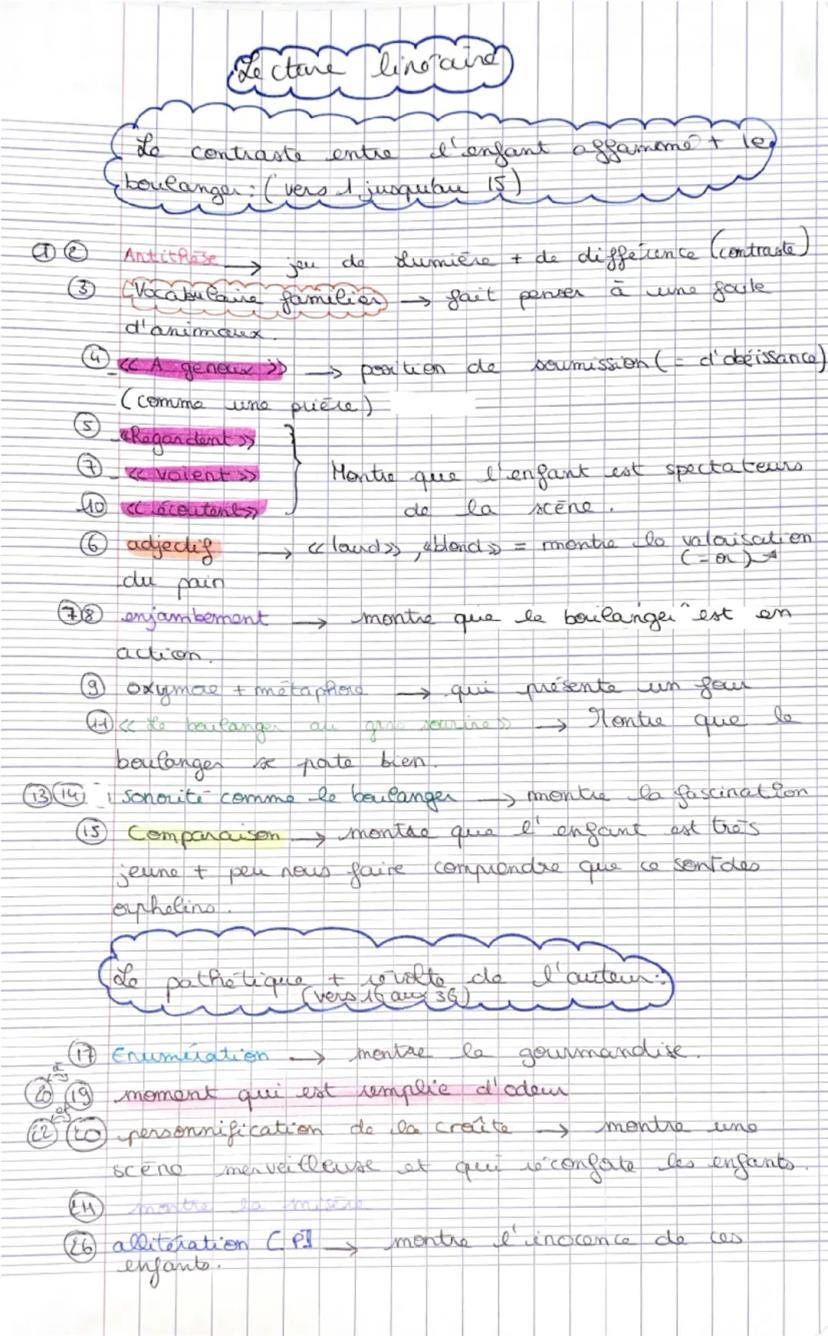 Lecture linéaire
Le contraste entre l'enfant affammé + le
boulanger : (vers 1 jusqu'au 15)
① ② Antithèse → jeu de lumière + de différence (contraste)
③ Vocabulaire familier → fait penser à une foule
d'animaux.
④ « A genoux » → position de soumission (= d'obéissance)
(comme une prière)
⑤ « Regardent »
⑦ « voient » Montre que l'enfant est spectateurs
⑩ « écoutent » de la scène.
⑥ adjectif → « lourd », « blond » = montre la valorisation
du pain (= or)
⑦⑧ enjambement → montre que le boulanger est en
action.
⑨ oxymore + métaphore → qui présente un four
⑪ « Le boulanger au gras sourire » → Montre que le
boulanger se porte bien.
⑬⑭ sonorité comme le boulanger → montre la fascination
⑮ Comparaison → montre que l'enfant est très
jeune + peu nous faire comprendre que ce sont des
orphelins.
Le pathétique + révolte de l'auteur :
(vers 16 aux 36)
⑰ Enumération → montre la gourmandise.
⑳ et ⑲ moment qui est remplie d'odeur
㉒ et ⑳ personnification de la croûte → montre une
scène merveilleuse et qui réconforte les enfants.
㉔ montre la misère
㉖ allitération [P] → montre l'inocence de ces
enfants.